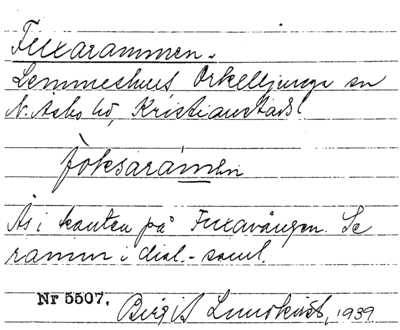 Fuxarammen.
Lemmeshus Örkelljunga sn
N. Åsbo hd, Kristianstads
foksaramen
Ås i kanten på Fuxavången. Se
ramm i dial.-saml.
Nr 5507. Birgit Lundkvist, 1939